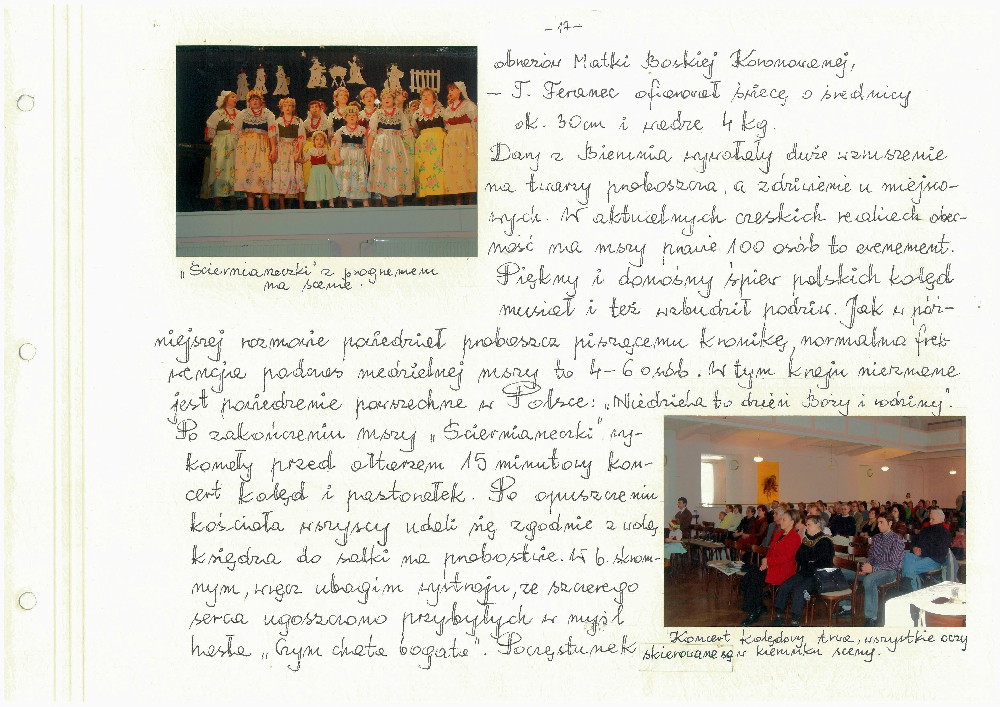 - 17 -
obrazów Matki Boskiej Koronowanej,
- T. Feranec ofiarował świecę o średnicy
ok. 30cm i wadze 4 kg.
Dary z Biemnia wywołały duże wzruszenie
na twarzy proboszcza, a zdziwienie u miejsco-
wych. W aktualnych czeskich realiach obec-
ność na mszy prawie 100 osób to evenement.
Piękny i donośny śpiew polskich kolęd
musiał i też wzbudził podziw. Jak w póź-
niejszej rozmowie powiedział proboszcz piszącemu kronikę, normalna frek-
wencja podczas niedzielnej mszy to 4-6 osób. W tym kraju nieznane
jest powiedzenie powszechne w Polsce: „Niedziela to dzień Boży i rodziny".
Po zakończeniu mszy „Ściernianeczki" wy-
konały przed ołtarzem 15 minutowy kon-
cert kolęd i pastorałek. Po opuszczeniu
kościoła wszyscy udali się zgodnie z wolą
księdza do salki na probostwie. W b. skrom-
nym, wręcz ubogim wystroju, ze szczerego
serca ugoszczono przybyłych w myśl
hasła „Czym chata bogata". Poczęstunek
„Ściernianeczki" z programem
na scenie.
Koncert kolędowy trwa, wszystkie oczy
skierowane są w kierunku sceny.